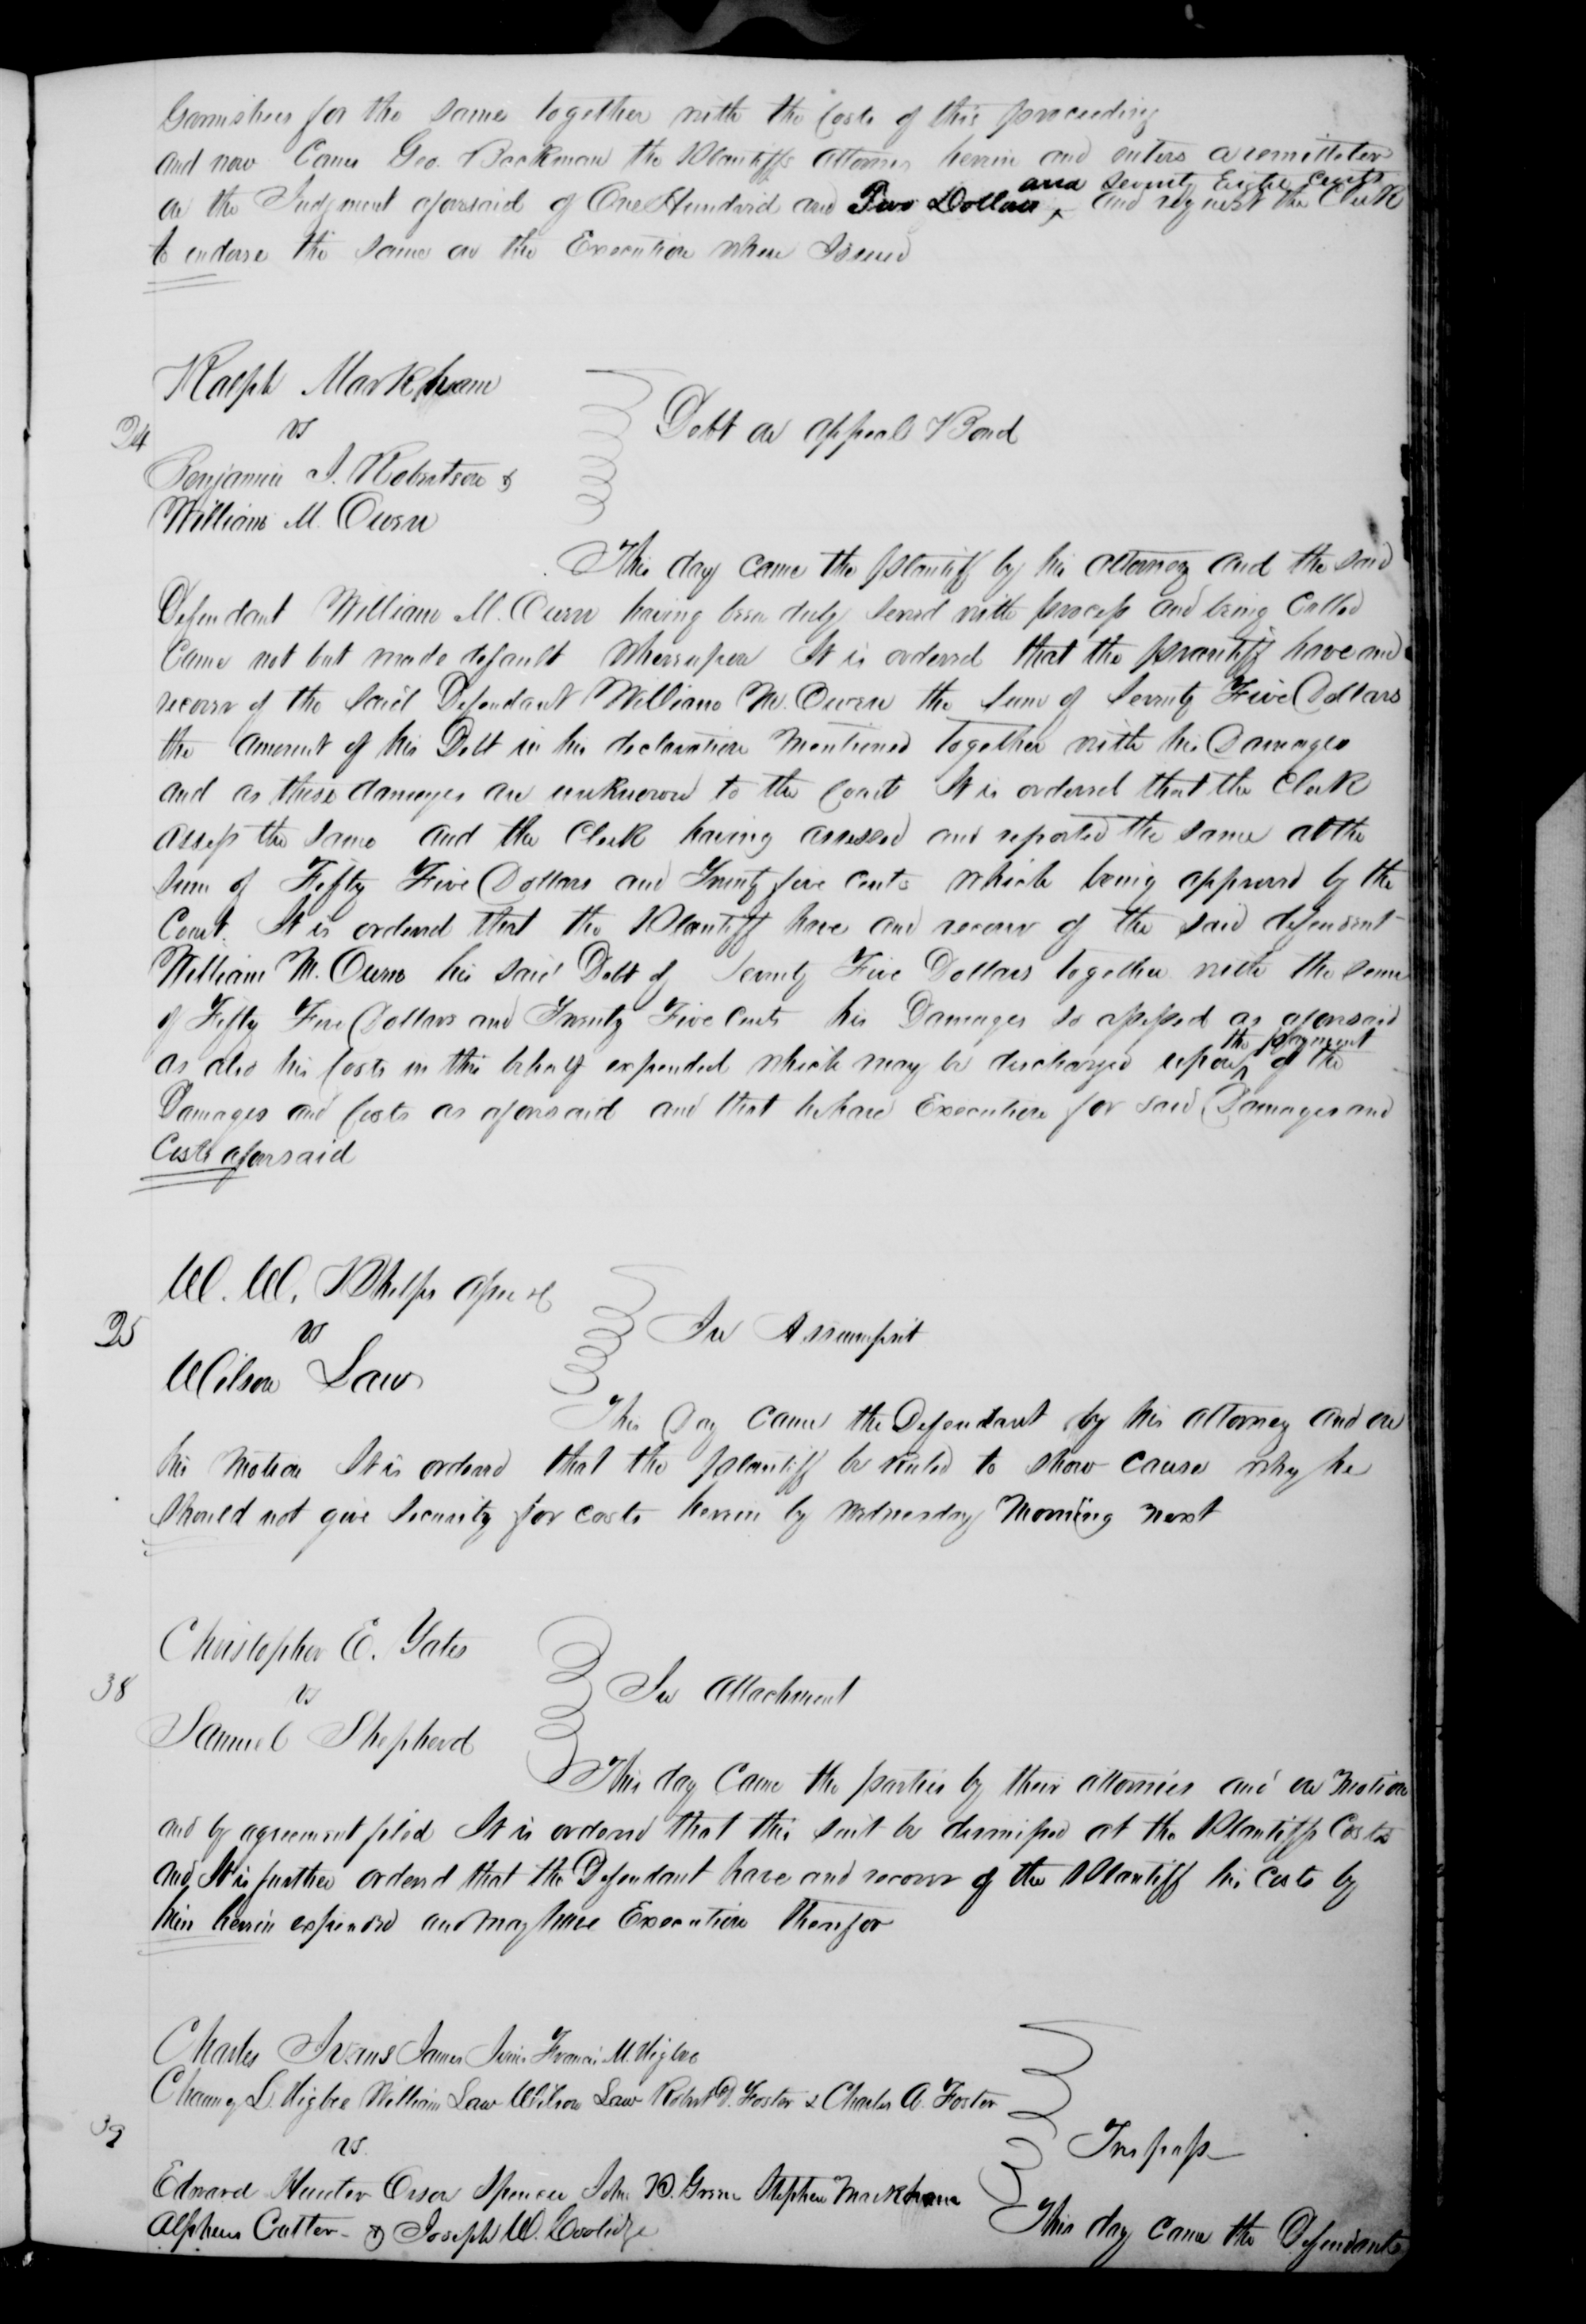 Garnishees for the same together with the Costs of this proceeding
and now Came Geo. Backman the Plantiffs attorney herein and enters a remittitur
on the Judgment aforesaid of One Hundred and Two Dollars and Seventy Eight Cents and request the Clerk
to endorse the same on the Execution when Issued
Ralph Markham
24
vs
Debt on appeal Bond
Benjamin J. Robertson &
William M. Owen
This day came the plantiff by his attorney and the said
Defendant William M. Owen having been duly served with process and being Called
Came not but made default whereupon It is ordered that the plantiff have and
recover of the said Defendant William M. Owen the sum of Seventy Five Dollars
the amount of his Debt in his declaration mentioned together with his Damages
and as these damages are unknown to the Court It is ordered that the Clerk
assess the same and the Clerk having assessed and reported the same at the
sum of Fifty Five Dollars and Twenty five cents which being approved by the
Court. It is ordered that the Plantiff have and recover of the said defendant
William M. Owen his said Debt of Seventy Five Dollars together with the sum
of Fifty Five Dollars and Twenty Five Cents his Damages so assessed as aforesaid
as also his Costs in this behalf expended which may be discharged upon the payment of the
Damages and Costs as aforesaid and that he have Execution for said Damages and
Costs aforesaid
W. W. Phelps assee &c
25
vs
In Assumpsit
Wilson Law
This Day came the Defendant by his attorney and on
his motion It is ordered that the plantiff be ruled to show cause why he
should not give security for costs herein by wednesday Morning next
Christopher E. Yates
38
vs
In attachment
Samuel Shepherd
This day Came the parties by their attornies and on Motion
and by agreement filed It is ordered that this suit be dismissed at the Plantiffs Costs
and It is further orderd that the Defendant have and recover of the Plantiff his Costs by
him herein expended and may have Execution therefor
Charles Ivans James Ivins Francis M. Higbee
Chauncy L. Higbee William Law Wilson Law Robert D. Foster & Charles A. Foster
39
vs.
Trespass
Edward Hunter Orson Spencer John P. Green Stephen Markham
Alpheus Cutter & Joseph W. Coolidge
This day came the Defendants